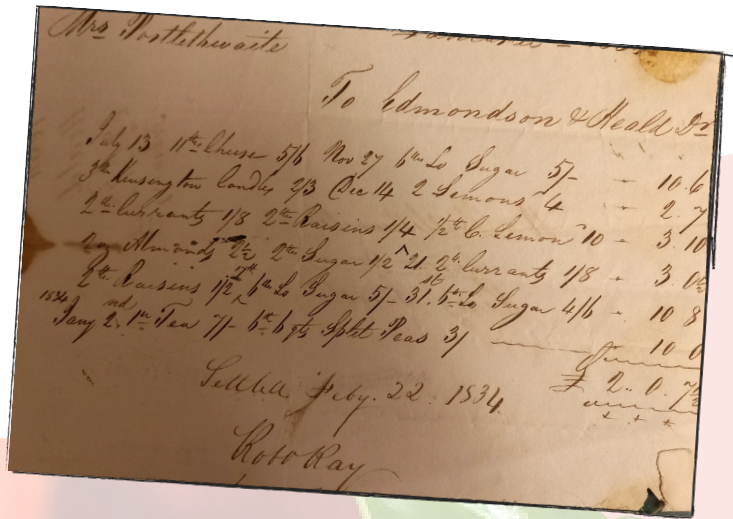 Mrs Postlethwaite
To Edmondson & Heald Dr
July 13 11lb Cheese 5/6 Nov 27 6lb Lo Sugar 5/- - 10.6
3lb Kensington Candles 2/3 Dec 14 2 Lemons 4 - 2.7
2lb Currants 1/8 2lb Raisins 1/4 1/2lb C. Lemon 10 - 3.10
Almonds 2½ 2lb Sugar 1/2 21 2lb Currants 1/8 - 3.0½
2lb Raisins 1/2 6lb Lo Sugar 5/- 31 6lb Lo Sugar 4/6 - 10 8
1834 Jany 2nd 1lb Tea 7/- 6 qts Split Peas 3/ 10 0
£ 2.. 0. 7½
Settled Feby. 22. 1834
Robt Kay